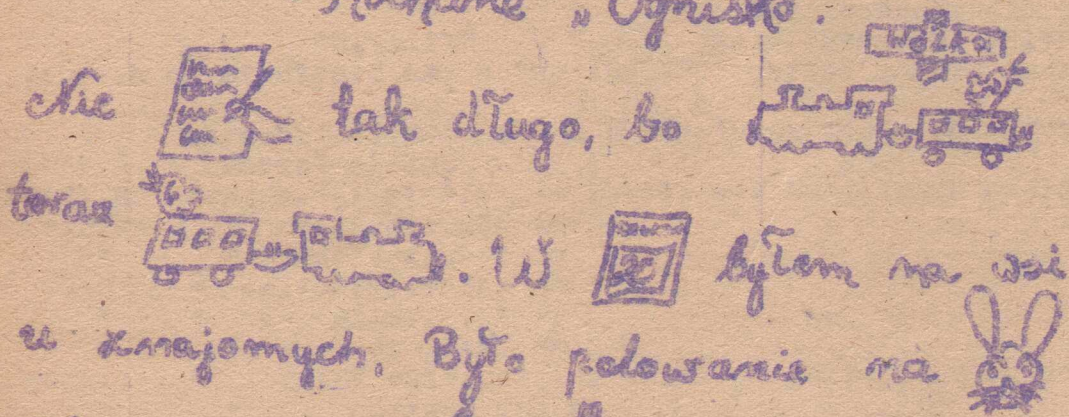 Kochane „Ognisko".
Nie tak długo, bo
teraz . W byłem na wsi
u znajomych. Było polowanie na